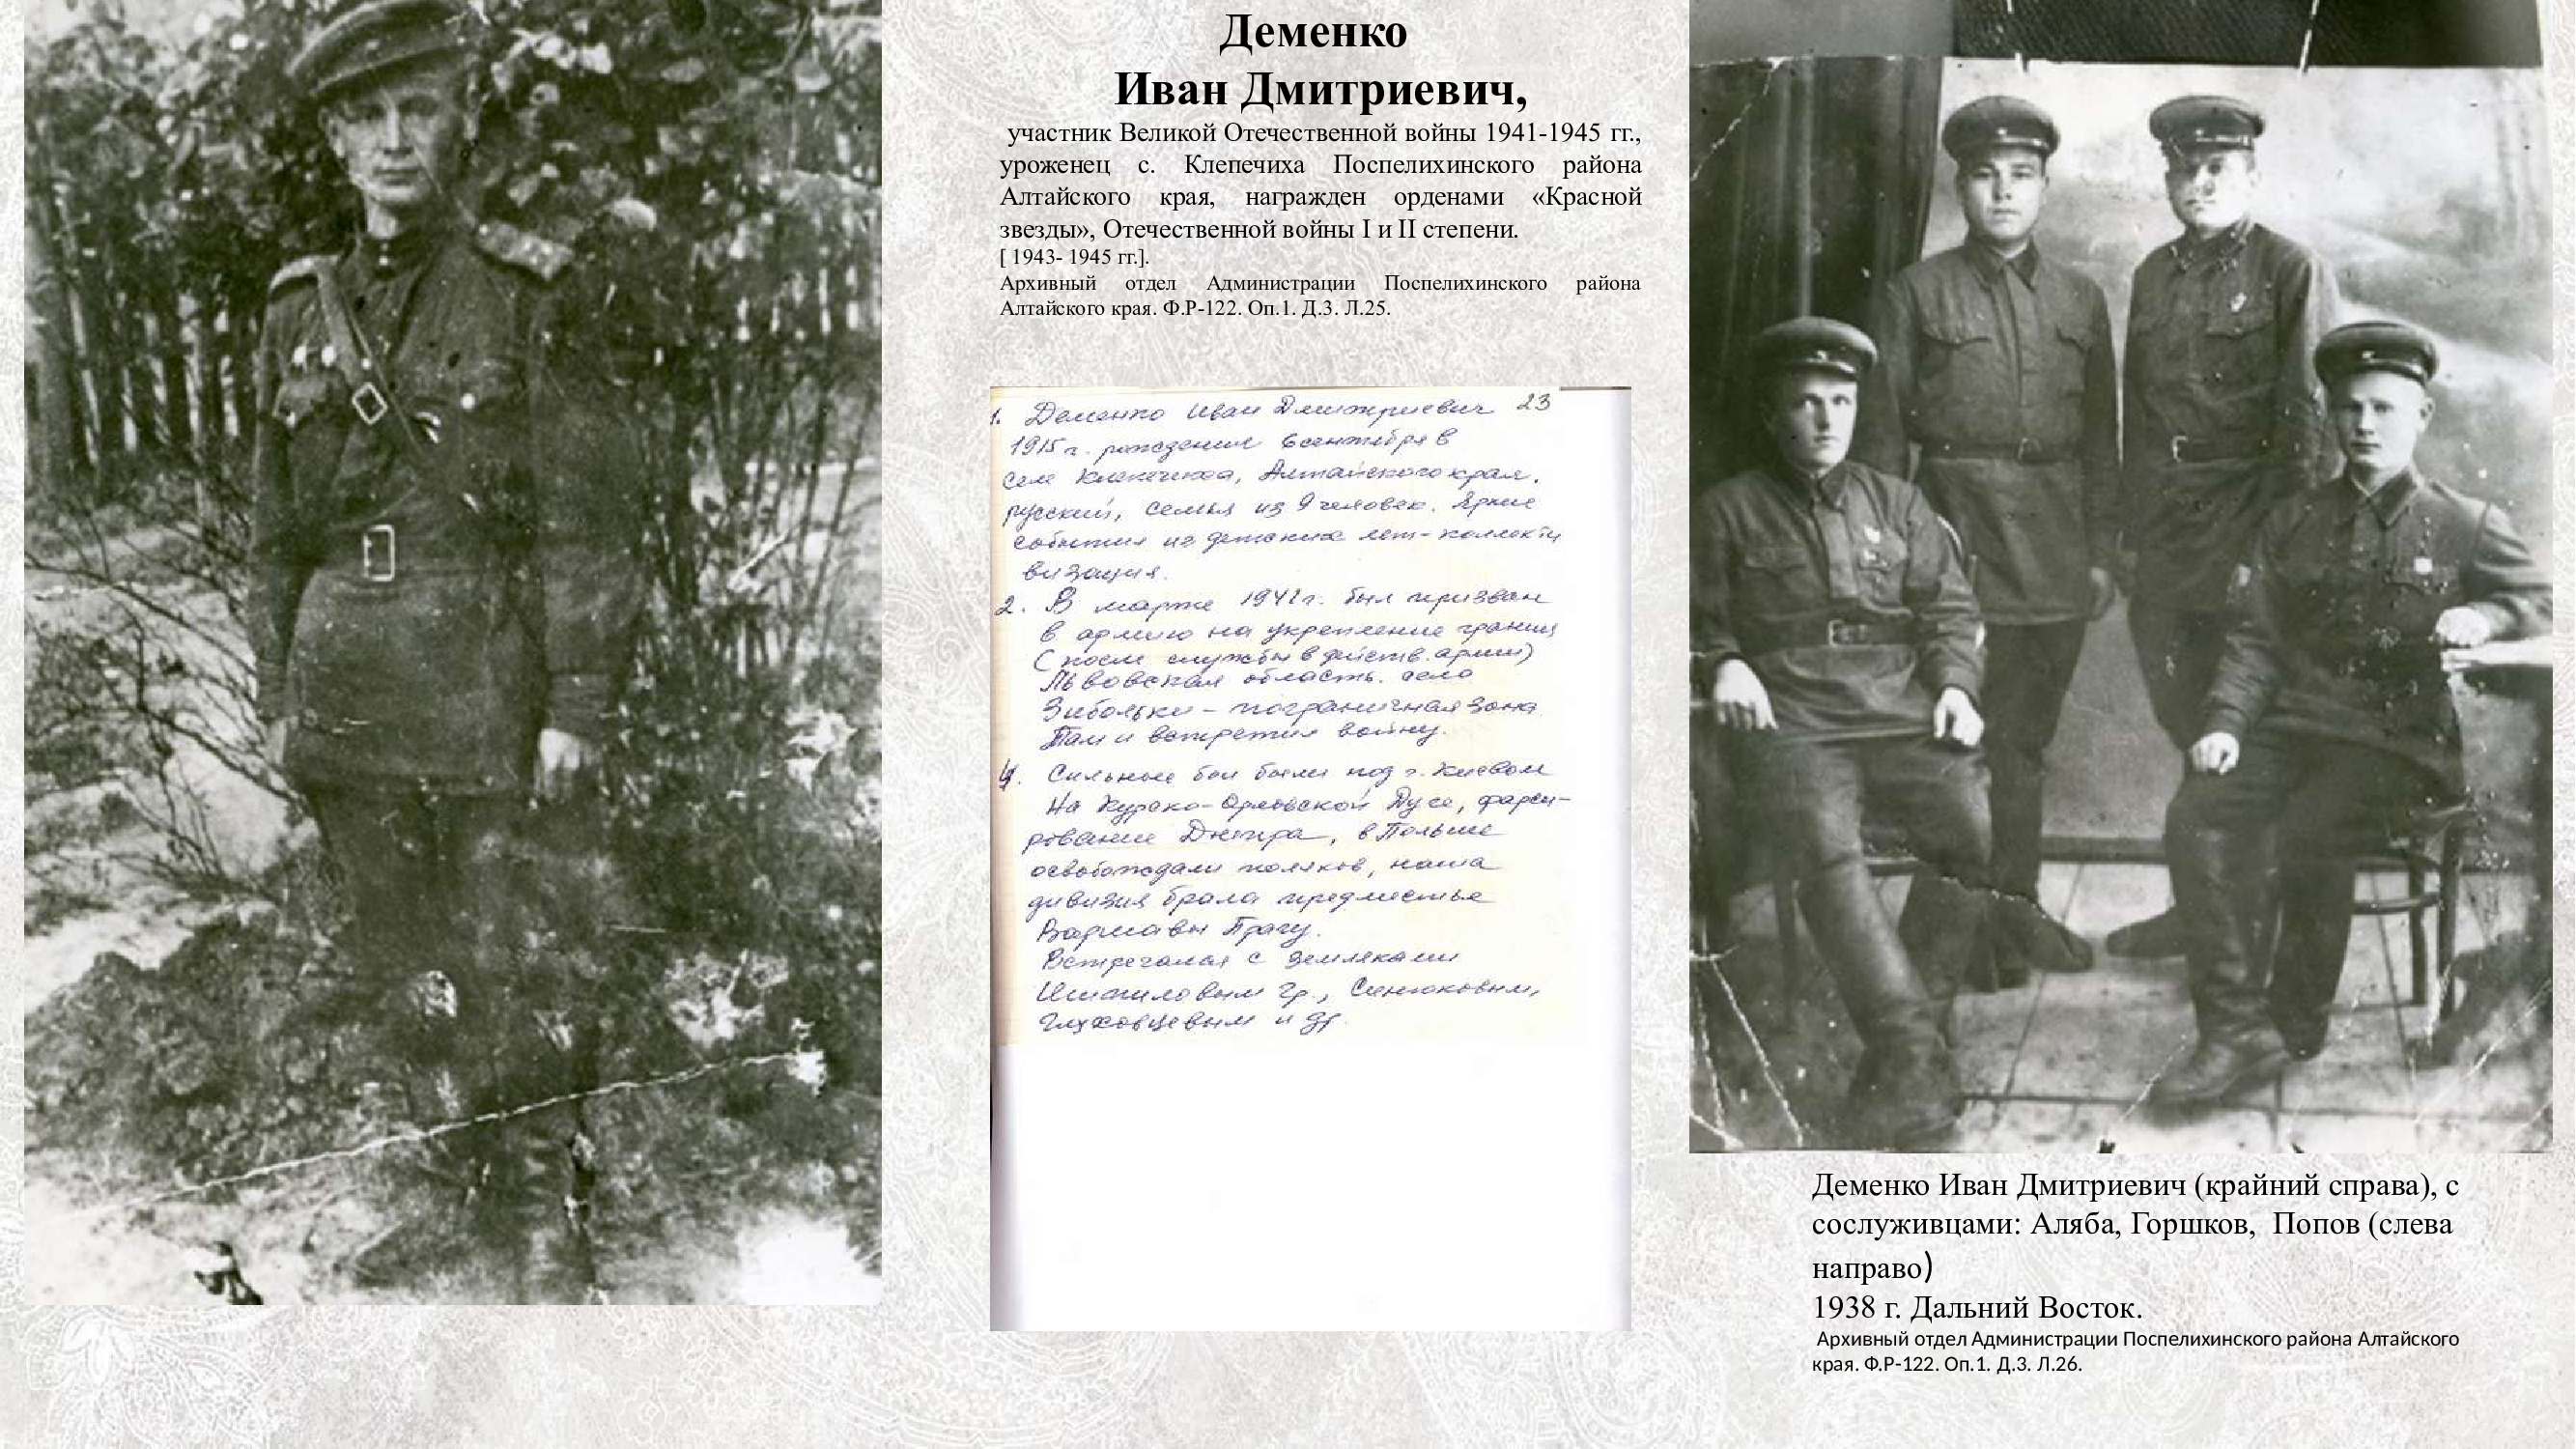 Деменко
Иван Дмитриевич,
участник Великой Отечественной войны 1941-1945 гг.,
уроженец с. Клепечиха Поспелихинского района
Алтайского края, награжден орденами «Красной
звезды», Отечественной войны I и II степени.
[ 1943- 1945 гг.].
Архивный отдел Администрации Поспелихинского района
Алтайского края. Ф.Р-122. Оп.1. Д.3. Л.25.
23
1. Деменко Иван Дмитриевич
1915 г. рождения 6 сентября в
селе Клепечиха, Алтайского края.
русский, семья из 9 человек. Яркие
события из детских лет - коллекти
визация.
2. В марте 1941г. был призван
в армию на укрепление границ
(после службы в действ. армии)
Львовская область. село
Зибольки - пограничная зона.
Там и встретил войну.
4. Сильные бои были под г. Киевом
На Курско-Орловской Дуге, форси-
рование Днепра, в Польше
освобождали поляков, наша
дивизия брала предместье
Варшавы Прагу.
Встречался с земляками
Измайловым Гр., Синюковым,
Глуховцевым и др.
Деменко Иван Дмитриевич (крайний справа), с
сослуживцами: Аляба, Горшков, Попов (слева
направо)
1938 г. Дальний Восток.
Архивный отдел Администрации Поспелихинского района Алтайского
края. Ф.Р-122. Оп.1. Д.3. Л.26.